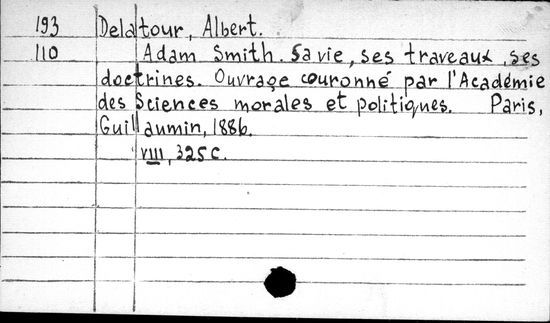 193 Delatour, Albert.
110 Adam Smith. Sa vie, ses traveaux, ses
doctrines. Ouvrage couronné par l'Académie
des Sciences morales et politiques. Paris,
Guillaumin, 1886.
VIII, 325 c.